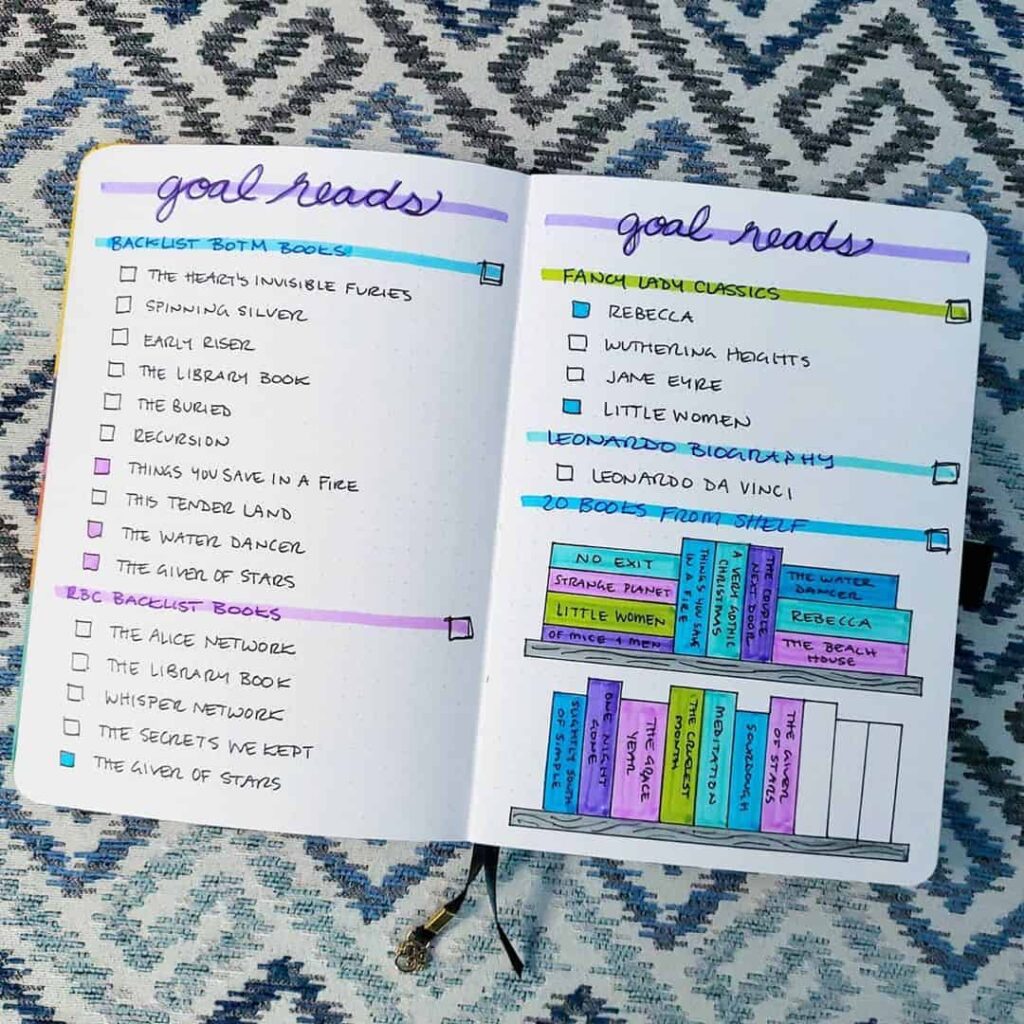 goal reads
BACKLIST BOTM BOOKS
THE HEART'S INVISIBLE FURIES
SPINNING SILVER
EARLY RISER
THE LIBRARY BOOK
THE BURIED
RECURSION
THINGS YOU SAVE IN A FIRE
THIS TENDER LAND
THE WATER DANCER
THE GIVER OF STARS
RBC BACKLIST BOOKS
THE ALICE NETWORK
THE LIBRARY BOOK
WHISPER NETWORK
THE SECRETS WE KEPT
THE GIVER OF STARS
goal reads
FANCY LADY CLASSICS
REBECCA
WUTHERING HEIGHTS
JANE EYRE
LITTLE WOMEN
LEONARDO BIOGRAPHY
LEONARDO DA VINCI
20 BOOKS FROM SHELF
NO EXIT
STRANGE PLANET
LITTLE WOMEN
OF MICE & MEN
THINGS YOU SAVE
IN A FIRE
A VERY GOTHIC
CHRISTMAS
THE COUPLE
NEXT DOOR
THE WATER
DANCER
REBECCA
THE BEACH
HOUSE
SLIGHTLY SOUTH
OF SIMPLE
ONE NIGHT
GONE
THE GRACE
YEAR
THE CRUELEST
MONTH
MEDITATION
SOURDOUGH
THE GIVER
OF STARS